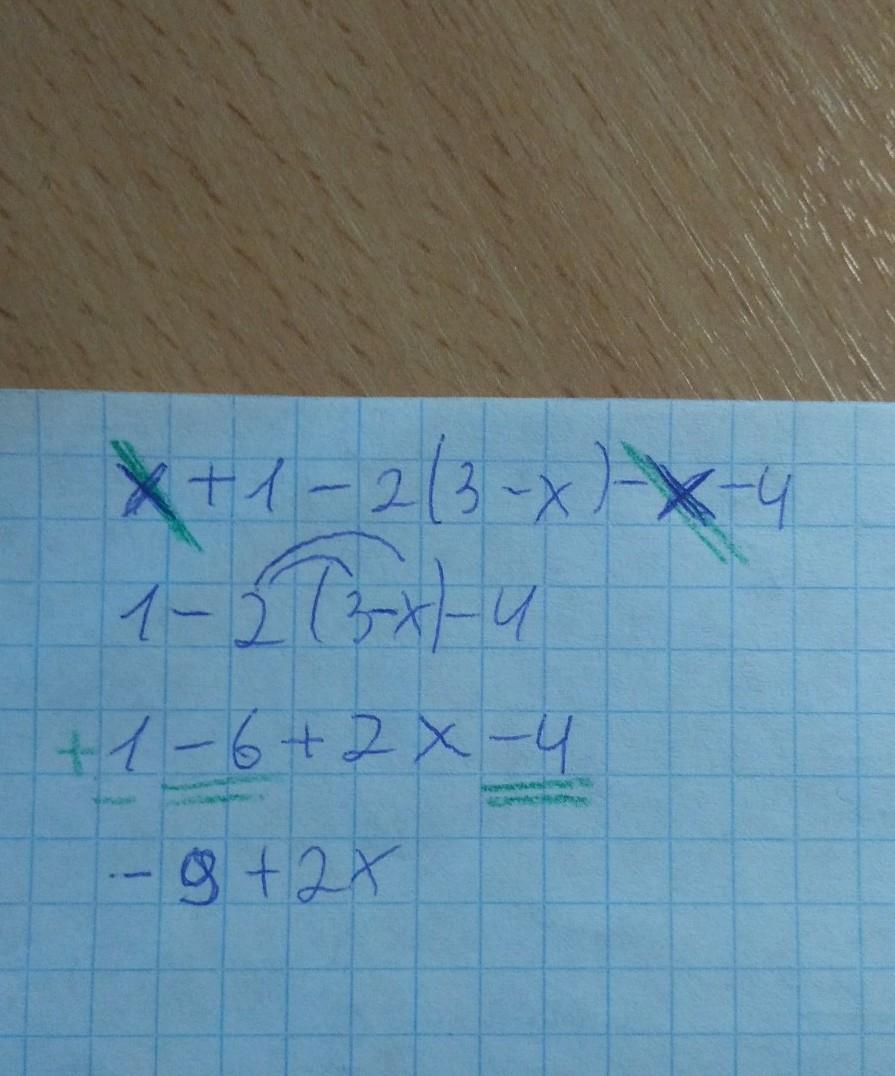 x + 1 - 2(3 - x) - x - 4
1 - 2(3 - x) - 4
+ 1 - 6 + 2x - 4
- 9 + 2x